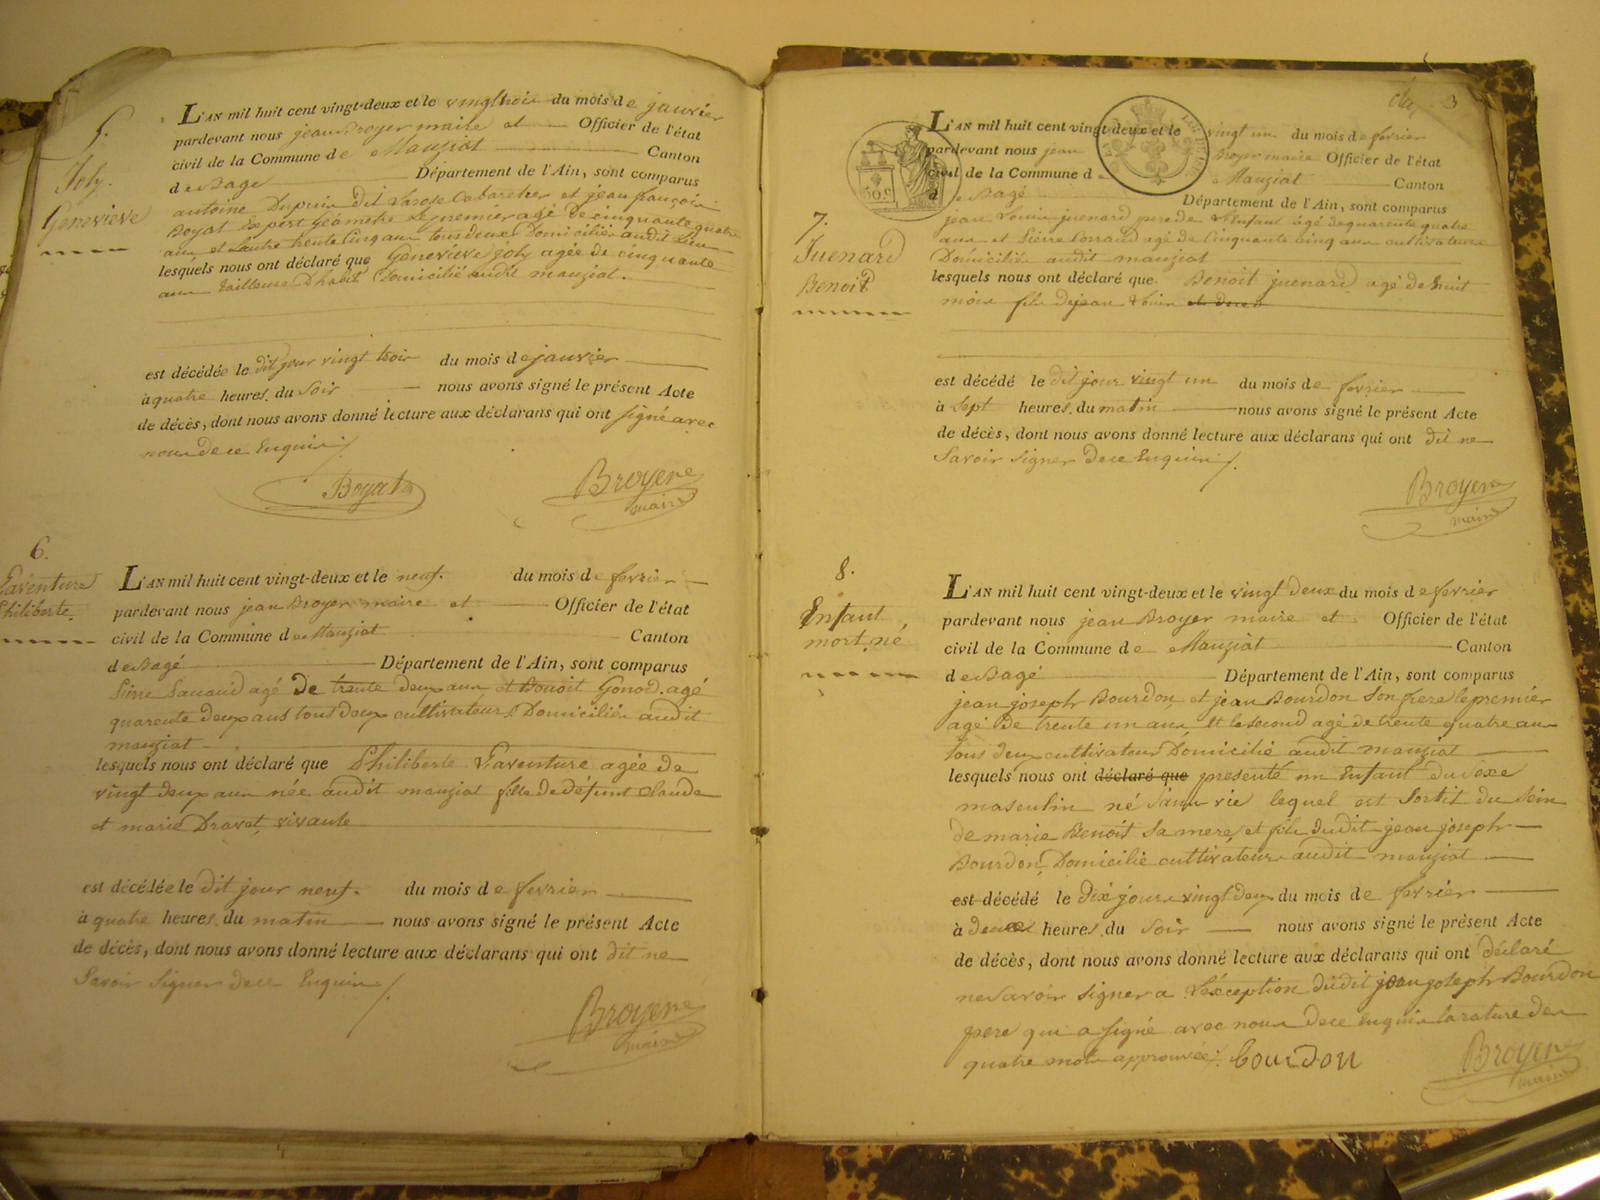 5.
Joly.
Geneviève
L'AN mil huit cent vingt-deux et le vingttrois du mois de janvier
pardevant nous jean Broyer maire et Officier de l'état
civil de la Commune de Mauziat Canton
de Bagé Département de l'Ain, sont comparus
antoine Dupuis dit Cabaretier et jean françois
Boyat Expert Géometre le premier agé de cinquante quatre
ans et l'autre trente cinq ans tous deux Domiciliés audit Lieu
lesquels nous ont déclaré que Geneviève Joly agée de cinquante
ans tailleuse D'habit Domicilié audit mauziat.
est décédée le dit jour vingt trois du mois de janvier
à quatre heures du soir nous avons signé le présent Acte
de décès, dont nous avons donné lecture aux déclarans qui ont signé avec
nous de ce Enquis
Boyat
Broyer
maire
6.
Laventure
Philiberte
L'AN mil huit cent vingt-deux et le neuf. du mois de fevrier
pardevant nous jean Broyer maire et Officier de l'état
civil de la Commune de Mauziat Canton
de Bagé Département de l'Ain, sont comparus
Pierre agé De trente deux ans et Benoit Gonod agé
quarente deux ans tous deux cultivateurs Domiciliés audit
mauziat
lesquels nous ont déclaré que Philiberte Laventure agée de
vingt deux ans née audit mauziat fille de défunt claude
et marie Dravet, vivante
est décédée le dit jour neuf. du mois de fevrier
à quatre heures du matin nous avons signé le présent Acte
de décès, dont nous avons donné lecture aux déclarans qui ont dit ne
Savoir Signer de ce Enquis
Broyer
maire
3
50c
7.
Juenard
Benoit
L'AN mil huit cent vingt-deux et le vingt un du mois de fevrier
pardevant nous jean Broyer maire Officier de l'état
civil de la Commune d Mauziat Canton
d Bagé Département de l'Ain, sont comparus
jean Louis juenard pere de L'Enfant agé de quarente quatre
ans et Pierre agé de Cinquante cinq ans cultivateurs
Domiciliés audit mauziat
lesquels nous ont déclaré que Benoit juenard agé de huit
mois fils de jean Louis
est décédé le dit jour vingt un du mois de fevrier
à Sept heures du matin nous avons signé le présent Acte
de décès, dont nous avons donné lecture aux déclarans qui ont dit ne
Savoir Signer de ce Enquis
Broyer
maire
8.
Enfant
mort né
L'AN mil huit cent vingt-deux et le vingt deux du mois de fevrier
pardevant nous jean Broyer maire et Officier de l'état
civil de la Commune de Mauziat Canton
de Bagé Département de l'Ain, sont comparus
jean joseph Bourdon et jean Bourdon Son frere le premier
agé De trente un ans et le second agé de trente quatre ans
tous deux cultivateurs Domicilié audit mauziat
lesquels nous ont déclaré que presenté un Enfant du Sexe
masculin né Sans vie lequel est Sortit du Sein
de marie Benoit Sa mere, et fils dudit jean joseph
Bourdon, Domicilié cultivateur audit mauziat
est décédé le Dit jour vingt Deux du mois de fevrier
à deux heures du Soir nous avons signé le présent Acte
de décès, dont nous avons donné lecture aux déclarans qui ont déclaré
ne Savoir Signer a L'exception dudit jean joseph Bourdon
pere qui a signé avec nous de ce Enquis la rature des
quatre mots approuvée.
bourdon
Broyer
maire